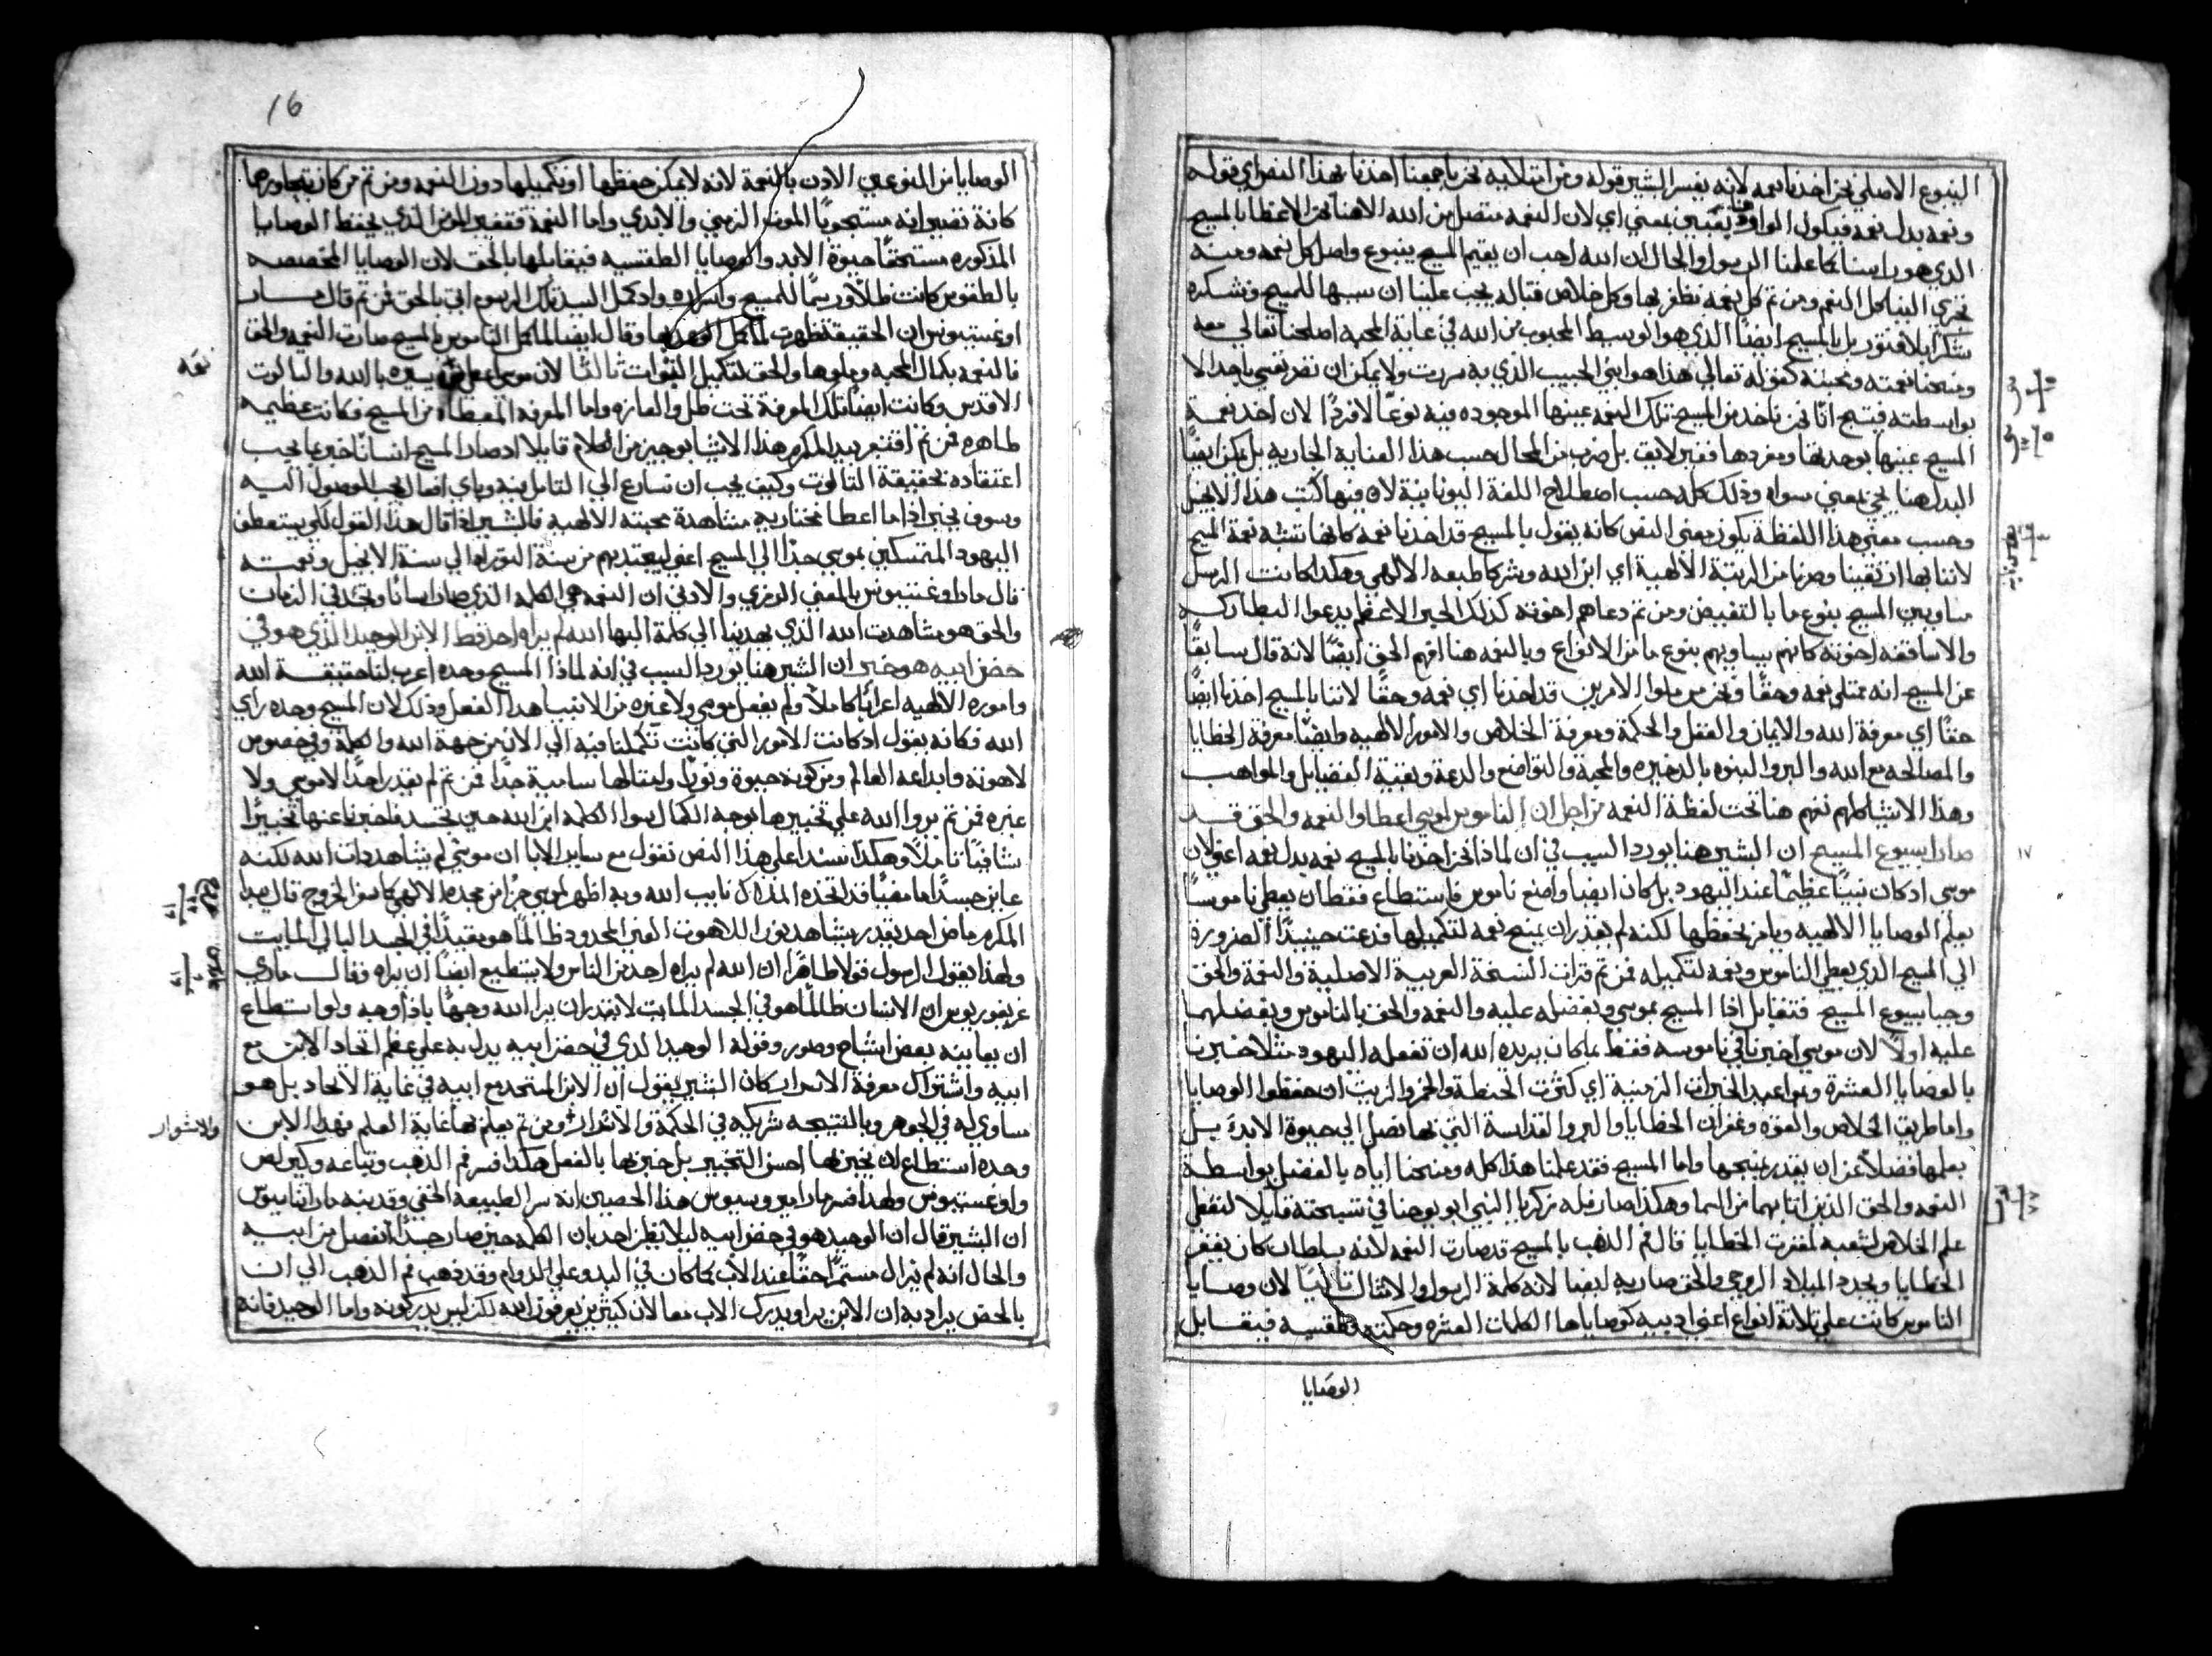 الينبوع الاصلي نحن اخذنا نعمه لانه يفسر البشير قوله ومن امتلايه نحن باجمعنا اخذنا بهذا النص اي قوله
ونعمه بدل نعمه فيكون الواو هنا بمعني اي لان النعمه متصل من الله الاهنا نحن الاعضا بالمسيح
الذي هو راسنا كما علمنا الرسول والحال ان الله احب ان يقيم المسيح ينبوع واصل كل نعمه ومنه
تجري الينا كل النعم ومن ثم كل نعمه نظفر بها وكل خلاص قباله يجب علينا ان ننسبها للمسيح ونشكره
شكرًا بلا فتور بل بالمسيح ايضًا الذي هو الوسيط المحبوب من الله في غاية المحبه اصلحنا تعالي معه
ومنحنا نعمته ومحبته كقوله تعالي هذا هو ابني الحبيب الذي به سررت ولا يمكن ان نصر نعمي باحد الا
بواسطته فينتج انّا نحن ناخد من المسيح تلك النعمه عينها الموجوده فيه نوعًا لا فردًا لان اخد نعمة
المسيح عينها بوحدتها ومفردها فغير لايق بل ضرب من المحال حسب هذا العنايه الجاريه بل يمكن ايضًا
البدل هنا يجي بمعني سواه وذلك كله حسب اصطلاح اللغة اليونانية لان فيها كتب هذا الانجيل
وحسب معني هذا اللفظة يكون معني النص كانه يقول بالمسيح قد اخدنا نعمه كانها تشبه نعمة المسيح
لاننا بها ارتقينا وصرنا من الرتبة الالهية اي ابن الله وشركا طبعه الالهي وهكذا كانت الرسل
مساويين المسيح بنوع ما بالتفييض ومن ثم دعاهم اخوته كذلك الحبر الاعظم يدعوا البطاركه
والاساقفه اخوته كانهم يساويهم بنوع ما من الانواع وبالنعمه هنا افهم الحق ايضًا لانه قال سابقًا
عن المسيح انه ممتلي نعمه وحقًا ونحن من ملوا الامرين قد اخدنا اي نعمه وحقًا لاننا بالمسيح اخذنا ايضًا
حقًا اي معرفة الله والايمان والعقل والحكمة ومعرفة الخلاص والامور الالهيه وايضًا معرفة الخطايا
والمصالحه مع الله والبر والبنوه بالدخيره والمحبة والتواضع والدعة وبقية الفضايل والمواهب
وهذا الاشيا كلهم نفهم هنا تحت لفظة النعمه من اجل ان الناموس لموسي اعطا والنعمه والحق قد
صارا بيسوع المسيح ان البشير هنا يورد السبب في ان لماذا نحن اخدنا بالمسيح نعمه بدل نعمه اعني لان
موسي اد كان نبيًا عظيمًا عند اليهود بل كان ايضًا واضع ناموس فاستطاع فقط ان يعطي ناموسًا
يعلم الوصايا الالهيه ويامر بحفظها لكنه لم يقدر ان يمنح نعمه لتكميلها فدعت حينيدًا الضرورة
الي المسيح الذي يعطي الناموس ونعمه لتكميله فمن ثم قرات النسخة العربية الاصلية والنعمة والحق
وجبا بيسوع المسيح فتقابل اذا المسيح بموسي ويفضله عليه والنعمه والحق بالناموس ويفضلهما
عليه اولًا لان موسي اخبرنا في ناموسه فقط بما كان يريده الله ان تفعله اليهود مثلا خبرنا
بالوصايا العشرة وبمواعيد الخيرات الزمنية اي كثرت الحنطة والخمر والزيت ان حفظوا الوصايا
واما طريق الخلاص والقوه وغفران الخطايا والبر والقداسة التي بها نصل الي حيوة الابد بل
يعلمها فضلًا عن ان يقدر يمنحها واما المسيح فقد علمنا هذا كله ومنحنا اياه بالفضل بواسطة
النعمه والحق الذين اتا بهما من السما وهكذا صار قبله زكريا النبي ابو يوحنا في تسبحته قايلا لتعطي
علم الخلاص لشعبه لمغفرت الخطايا قال فم الذهب بالمسيح قد صارت النعمه لانه بسلطان كان يغفر
الخطايا ويجدد الميلاد الروحي والحق صار به ايضا لانه كلمة الرسول والامثال ثانيًا لان وصايا
الناموس كانت علي ثلاثة انواع اعني ادبيه كوصاياها الكلمات العشره وحكميه وطقسيه فيقابل
الوصايا
١٧
16
الوصايا من النوعين الاولين بالنعمة لانه لا يمكن حفظها او تكميلها دون النعمه ومن ثم من كان يتجاوزها
كانة تصير انه مستوجبًا الموت الزمني والابدي واما النعمة فتفيد المومن الذي يحفظ الوصايا
المذكوره مستحقًا حيوة الابد والوصايا الطقسيه فيقابلها بالحق لان الوصايا المختصصه
بالطقوس كانت ظلًا ورسمًا للمسيح واسراره واد كمل السيد تلك الرسوم اتي بالحق فمن ثم قال مار
اوغستينوس ان الحقيقه ظهرت لما كمل الوعد بها وقال ايضا لما كمل الناموس بالمسيح صارت النعمه والحق
فالنعمه بكمال المحبه وملوها والحق لتكميل النبوات ثالثًا لان موسي اعطي معرفة يسيره بالله والثالوت
الاقدس وكانت ايضا تلك المعرفة تحت ظل والغازه واما المعرفه المعطاه من المسيح فكانت عظيمه
ظاهره فمن ثم اقتنع بيد المكرم هذا الاشيا بوجيز من الكلام قايلا اد صار المسيح انسانًا اخبر عما يجب
اعتقاده بحقيقة الثالوت وكيف يجب ان نسارع الي التامل فيه وباي افعال يجب الوصول اليه
وسوف يجبر اذا ما اعطا مختاريه مشاهدة محبته الالهيه فالبشير اذا قال هذا القول لكي يستعطف
اليهود المتمسكين بموسي جدًا الي المسيح اعني ليجتدبهم من سنة التوراه الي سنة الانجيل ونعمته
قال مار اوغستينوس بالمعني الرمزي والادبي ان النعمه هي الكلمه الذي صار انسانًا وتجد في الذمات
والحق هو مشاهدت الله الذي يهدينا الي كلمة البها الله لم يراه احد قط الابن الوحيد الذي هو في
حضن ابيه هو خبر ان البشير هنا يورد السبب في انه لماذا المسيح وحده اعرب لنا حقيقة الله
واموره الالهيه اعرابًا كاملًا ولم يفعل موسي ولا غيره من الانبيا هدا الفعل وذلك لان المسيح وحده راي
الله فكانه يقول اد كانت الامور التي كانت تكملنا فيه الي الان من جهة الله والكلمة وفي خصوص
لاهوته وابداعه العالم ومن كونه حيوة ونورًا وامثالها سامية جدًا فمن ثم لم يقدر احدًا لا موسي ولا
غيره فمن ثم يروا الله علي تخبيرها بوجه الكمال سوا الكلمه ابن الله حين تجسد فاخبرنا عنها تخبيرًا
شافيًا كاملًا وهكذا نسند اعلي هذا النص نقول مع ساير الابا ان موسي لم يشاهد دات الله لكنه
عاين جسدًا ما مضيًا قد اتخده الملاك نايب الله وبه اظهر لموسي جزًا من مجده الالهي كما سفر الخروج قال بيدا
المكرم ما من احد يقدر يشاهد نور اللاهوت الغير المحدود ظالمًا هو مقيدًا في الجسد البالي المايت
ولهذا يقول الرسول قولا ظاهرًا ان الله لم يراه احد من الناس ولا يستطيع ايضًا ان يراه وقال ماري
غريغوريوس ان الانسان طالمًا هو في الجسد المايت لا يقدر ان يرا الله وجهًا باذا وجه ولو استطاع
ان يعاينه ببعض اشباح وصور وقوله الوحيد الذي في حضن ابيه يدل به علي عظم اتحاد الابن مع
ابيه واشتراك معرفة الاسرار كان البشير يقول ان الابن المتحد مع ابيه في غاية الاتحاد بل هو
مساوي له في الجوهر وبالنتيجه شريكه في الحكمة والاسرار ومن ثم يعلم بها غاية العلم فهدا الابن
وحده استطاع ان يخبر بها احسن التخبير بل خبر بها بالفعل هكذا فسر فم الذهب وتباعه وكيرلص
واوغستينوس ولهدا فسر مار امبروسيوس هذا الحصين انه سر الطبيعه الخفي وقدينه مار اتناسيوس
ان البشير قال ان الوحيد هو في حضن ابيه ليلا يظن احد بان الكلمه حين صار جسدًا انفصل من ابيه
والحال انه لم يزال مستمرًا حقًا عند الاب كما كان في البدو علي الدوام وقد ذهب فم الذهب الي ان
بالحضن يراد به ان الابن يرا ويدرك الاب معا لان كثيرين يعرفون الله لكن ليس يدركونه واما الوحيد فانه
نعمه
والاسرار